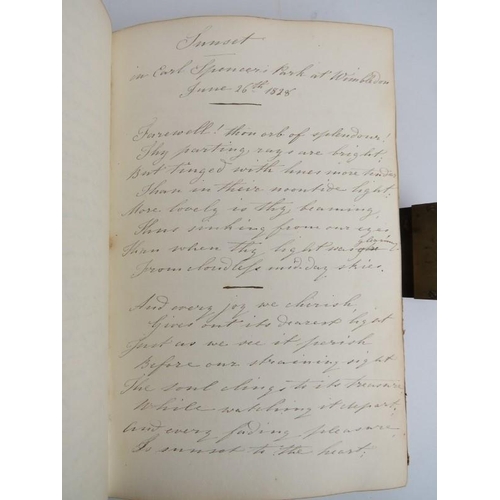 Sunset
in Earl Spencer's Park at Wimbledon
June 26th 1828
Farewell! thou orb of splendour!
Thy parting rays are bright;
But tinged with hues more tender
Than in their noontide light:
More lovely is thy beaming,
Thus sinking from our eyes,
Than when thy light was
From cloudless midday skies.
And every joy we cherish,
Gives out its dearest light
Just as we see it perish
Before our straining sight
The soul clings to its treasure
While watching it depart;
And every fading pleasure,
Is sunset to the heart.